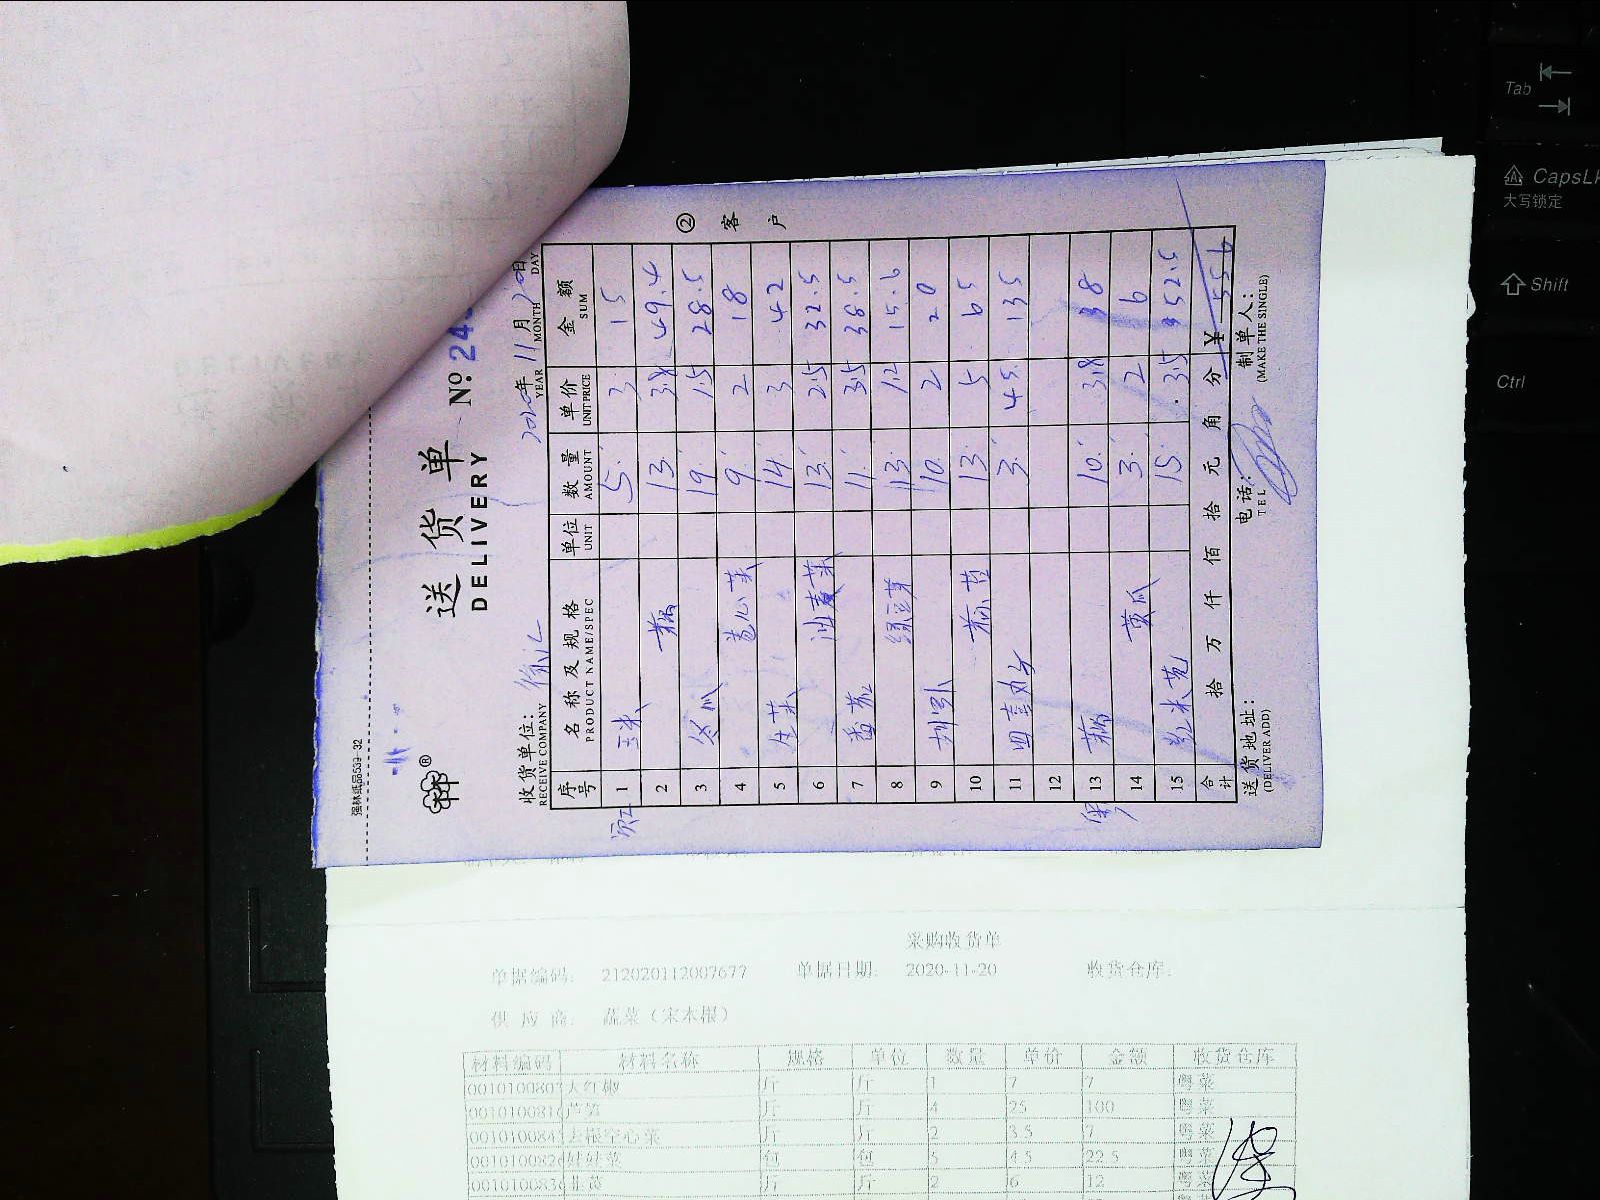 强林纸品539-32
送货单
DELIVERY
№ 24
收货单位：徐汇
RECEIVE COMPANY
2020年 11月 20日
YEAR MONTH DAY
② 客户
序号 名称及规格 单位 数量 单价 金额
PRODUCT NAME/SPEC UNIT AMOUNT UNIT PRICE SUM
1 玉米 5 3 15
2 藕 13 3.8 49.4
3 冬瓜 19 1.5 28.5
4 卷心菜 9 2 18
5 生菜 14 3 42
6 油麦菜 13 2.5 32.5
7 番茄 11 3.5 38.5
8 绿豆芽 13 1.2 15.6
9 2 20
10 13 5 65
11 四喜 3 45 135
12
13 藕 10 3.8 38
14 黄瓜 3 2 6
15 红米苋 15 3.5 52.5
合计 拾 万 仟 佰 拾 元 角 分 ¥ 556
送货地址：
(DELIVER ADD)
电话：
TEL
制单人：
(MAKE THE SINGLE)
采购收货单
单据编码: 212020112007677 单据日期: 2020-11-20 收货仓库:
供应商: 蔬菜（宋木根）
材料编码 材料名称 规格 单位 数量 单价 金额 收货仓库
0010100807 大红椒 斤 斤 1 7 7 粤菜
001010081 芦笋 斤 斤 4 25 100 粤菜
001010084 去根空心菜 斤 斤 2 3.5 7 粤菜
001010082 娃娃菜 包 包 5 4.5 22.5 粤菜
001010083 斤 斤 2 6 12 粤菜
Tab
CapsLk
大写锁定
Shift
Ctrl